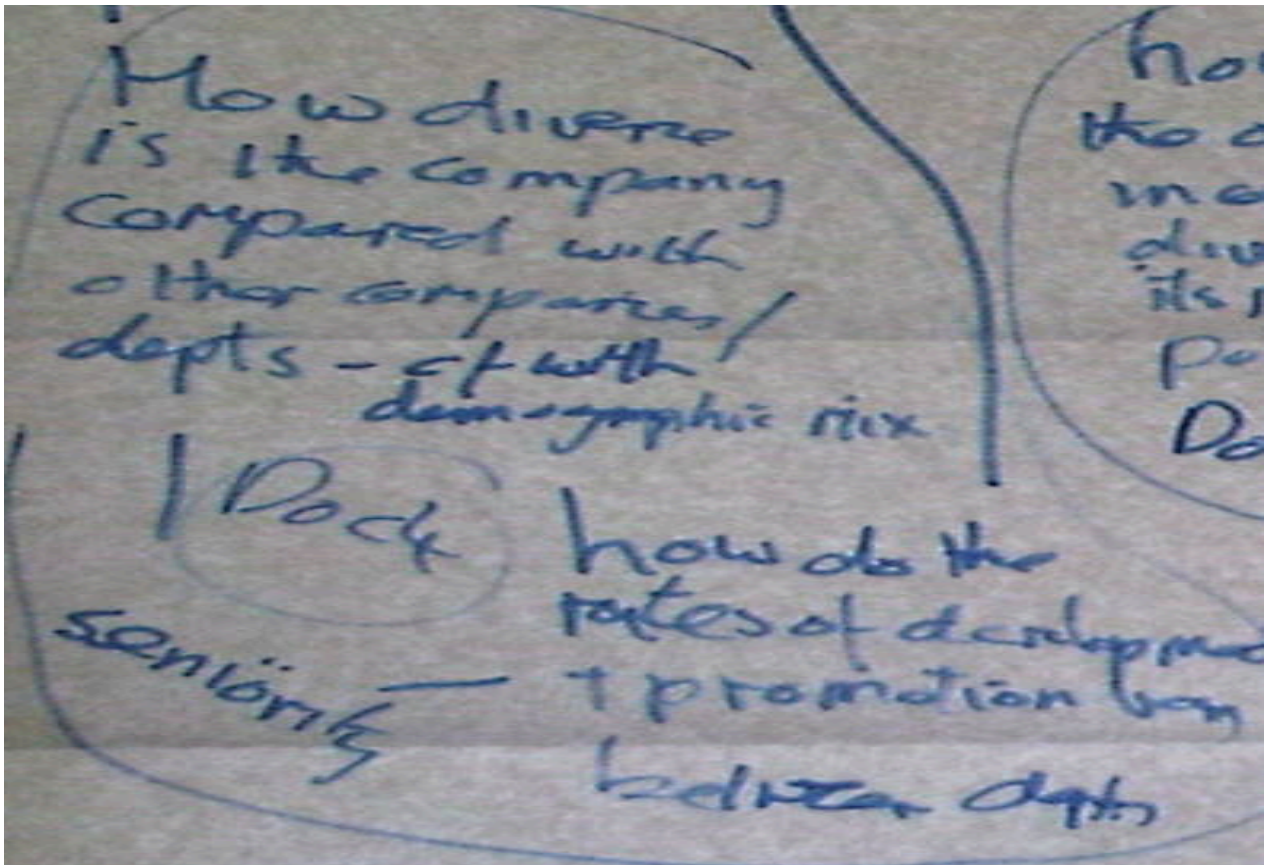 How diverse
is the company
compared with
other companies/
depts - cf with
demographic mix
Dock
how do the
rates of developme
seniority — + promotion vary
between depts
how
the
in
its
Do